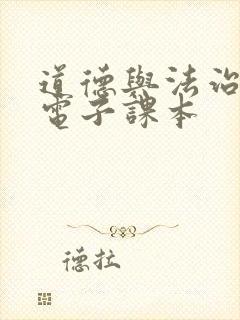 道德與法治
電子課本
德拉